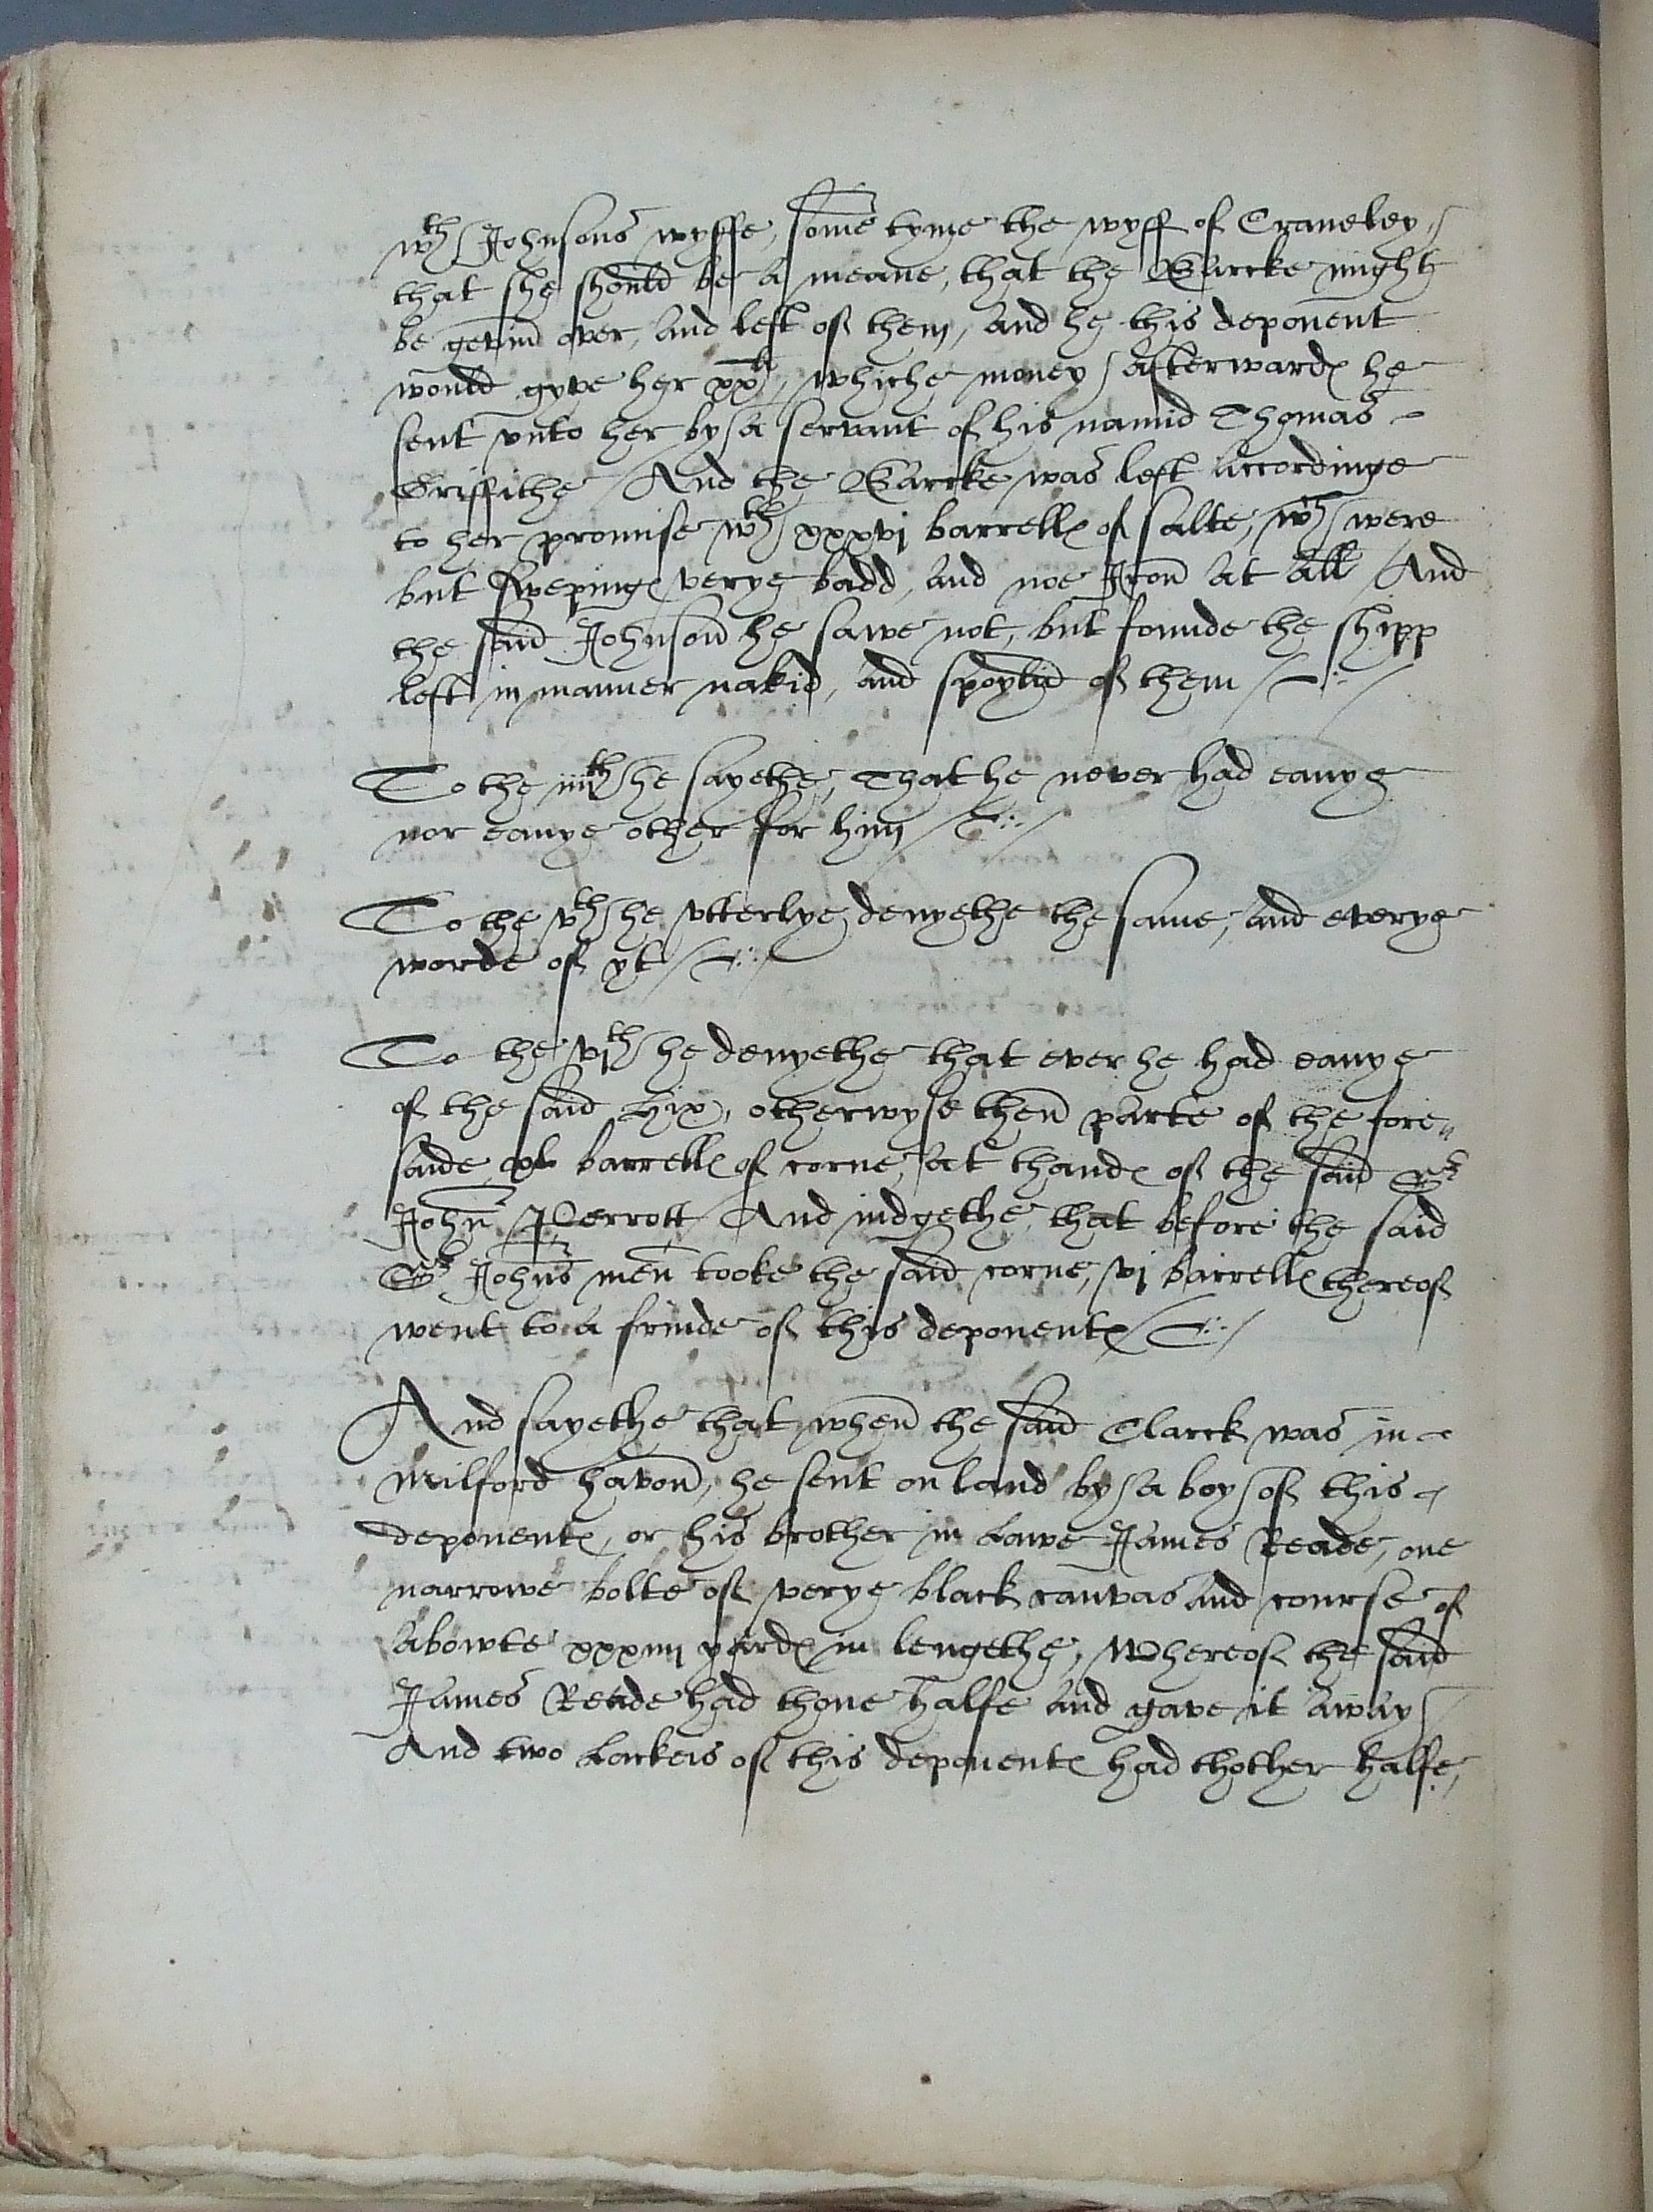 wth Johnsons wyffe, some tyme the wyff of Craneley,
that she should be a meane, that the Barcke might
be gevind over, and left of them, and he this deponent
would gyve her xxli, whiche money afterwards he
sent vnto her by a servant of his namid Thomas
Griffithe / And the Barcke was left accordinge
to her promise wth xxxvj barrells of salte, wch were
but swepings verye badd, and noe Iron at all / And
the said Johnson he sawe not, but founde the shipp
left in manner nakid, and spoylid of them /
To the iiijth he sayethe, That he never had eanye
nor eanye other for him /
To the vth he vtterlye denyethe the same, and everye
worde of yt /
To the vjth he denyethe that ever he had eanye
of the said Hix, otherwyse then parte of the fore
saide xl barrells of corne, at thands of the said Sr
John Perrott / And iudgethe that before the said
Sr Johns men tooke the said corne, vj barrells thereof
went to a frinde of this deponents /
And sayethe that when the said Clarck was in
Milford havon, he sent on land by a boy of this
deponents, or his brother in Lawe James Reade, one
narrowe bolte of verye black canvas and course of
abowte xxxiiij yards in lengethe, Whereof the said
James Reade had thone halfe and gave it away
And two Lackeis of this deponents had thother halfe,